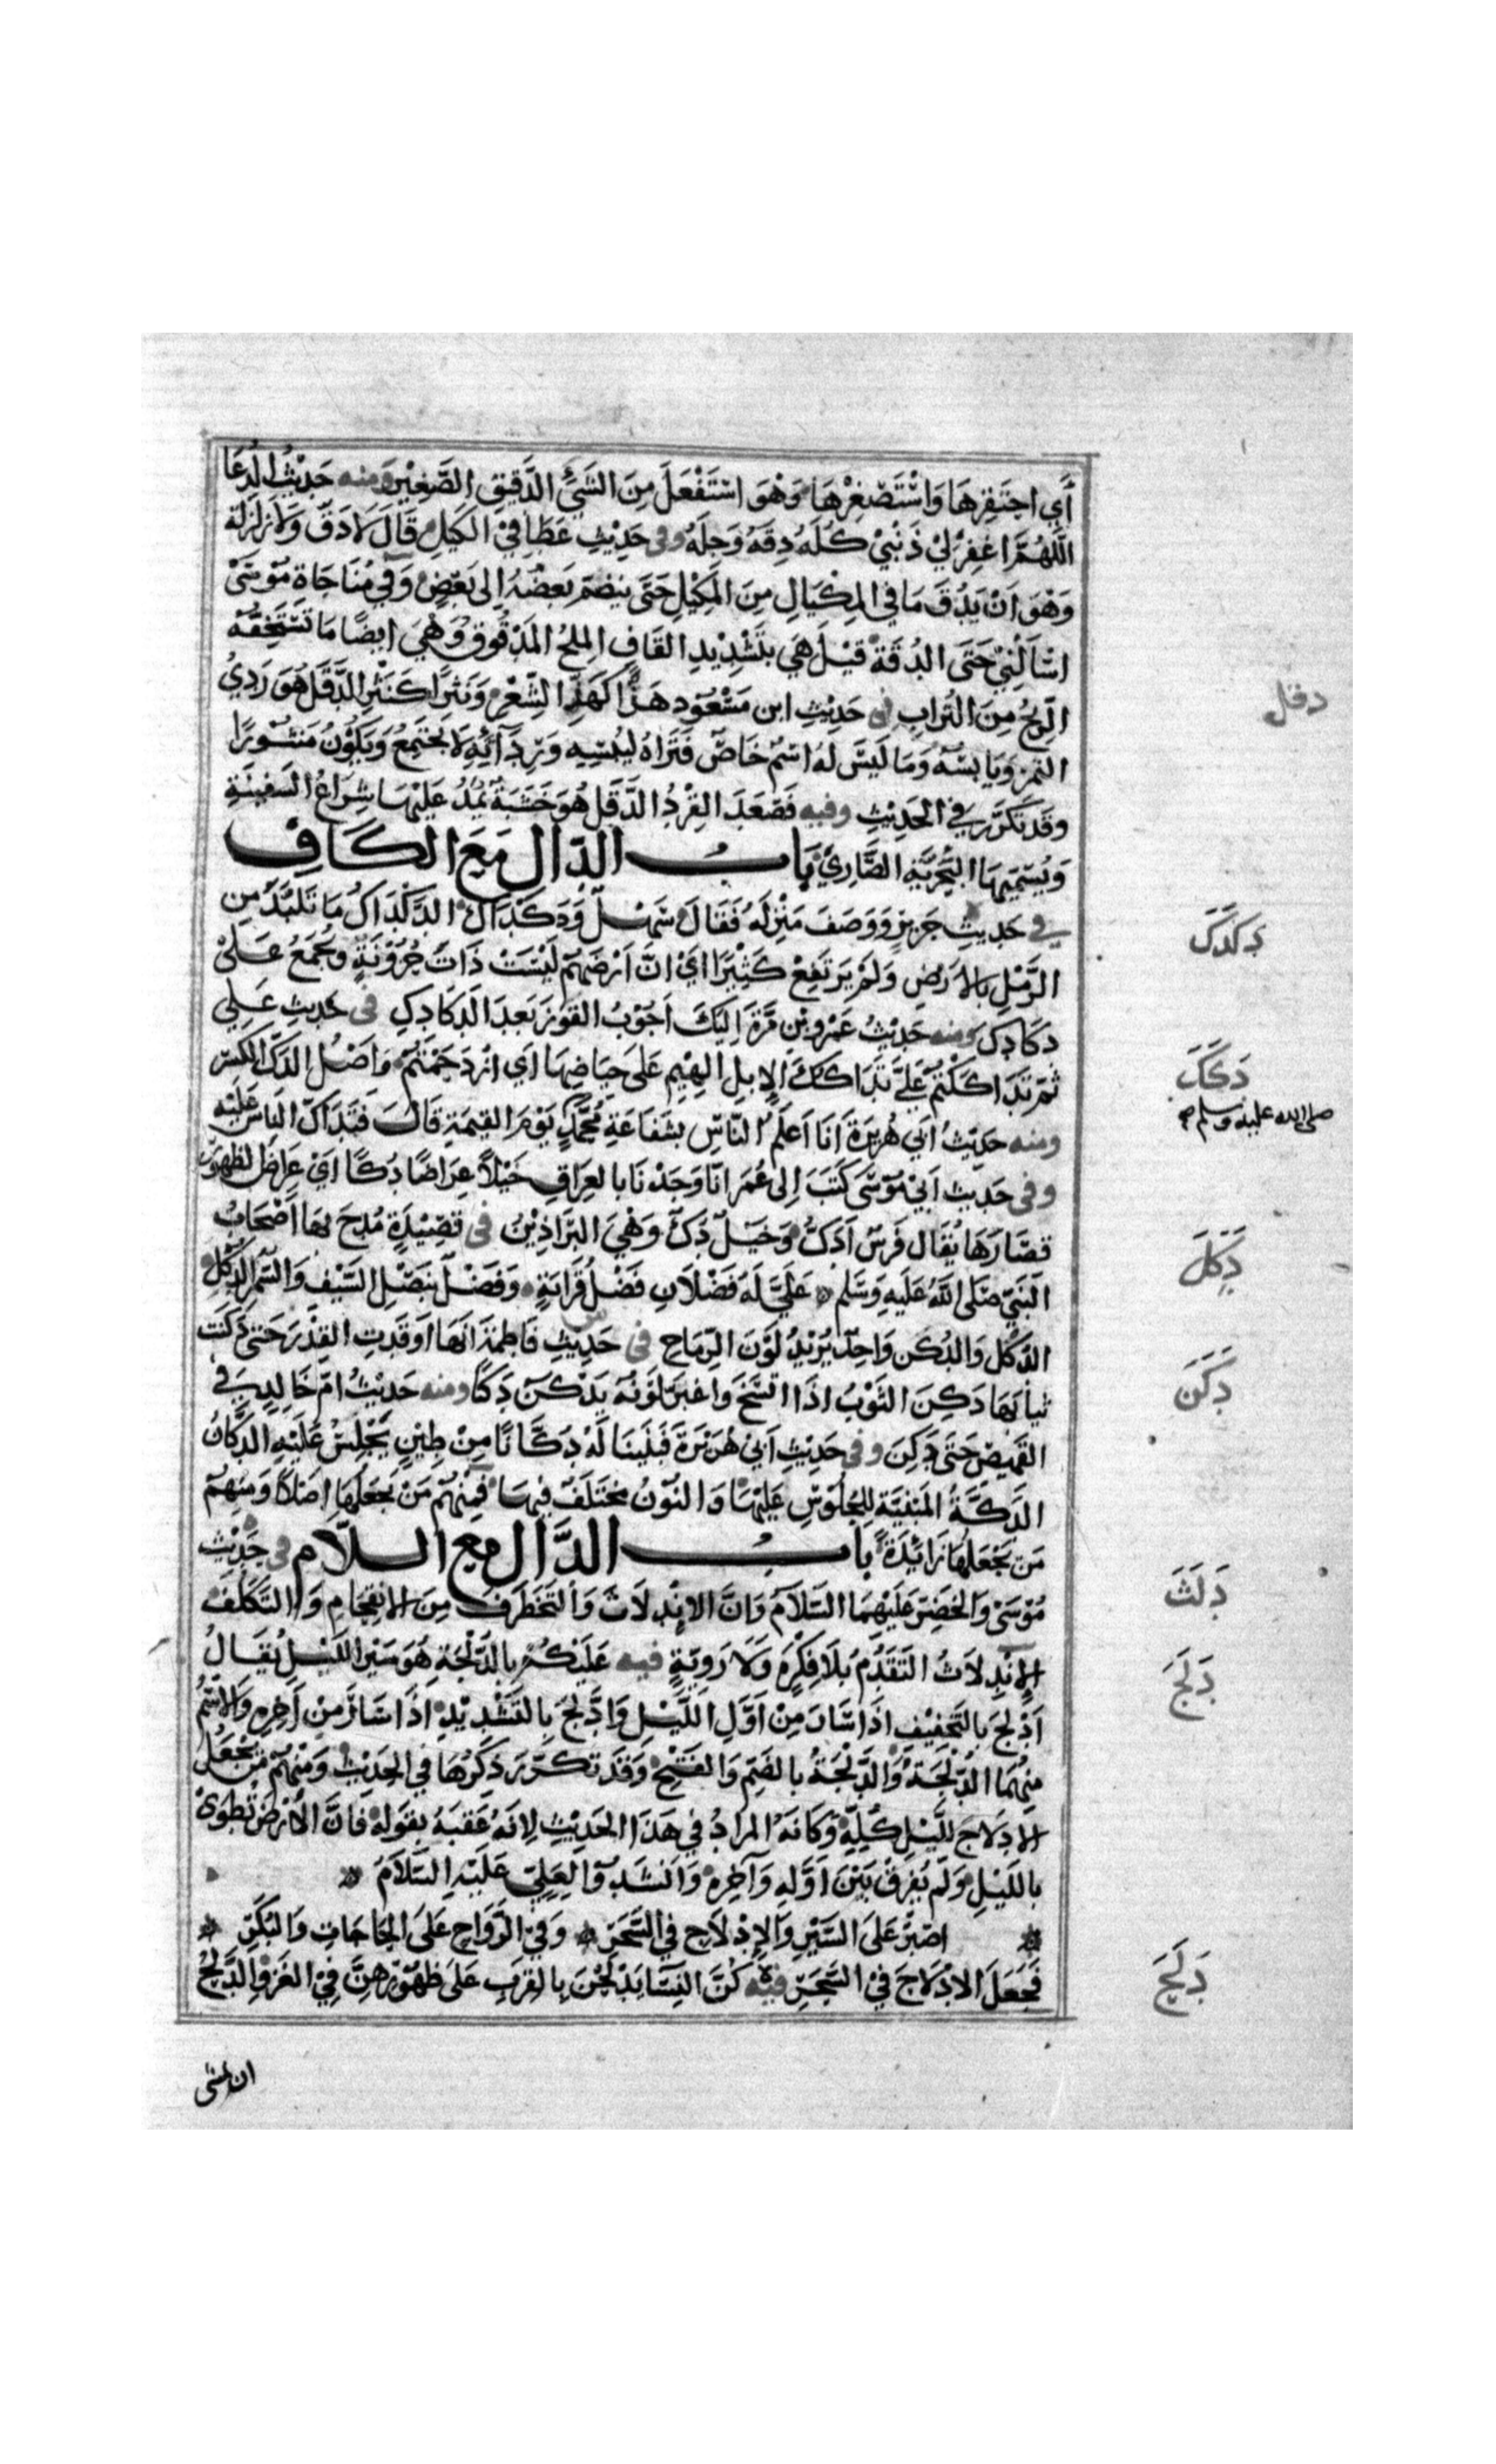 أَيِ احْتَقِرْهَا وَاسْتَصْغِرْهَا وَهُوَ اسْتَفْعَلَ مِنَ الشَّيْءِ الدَّقِيقِ الصَّغِيْرِ ومنه حَدِيْثُ الدُّعَا
اللَّهُمَّ اغْفِرْ لِيْ ذَنْبِيْ كُلَّهُ دِقَّهُ وَجِلَّهُ وفى حَدِيْثِ عَطَأٍ فِيْ الكَيْلِ قَالَ لَا دَقَّ وَلَا زَلْزَلَةَ
وَهُوَ اَنْ يَدُقَّ مَا فِي المِكْيَالِ مِنَ المَكِيْلِ حَتَّى يَنْضَمَّ بَعْضُهُ اِلَى بَعْضٍ وَفِي مُنَاجَاةِ مُوْسَىْ
اسْاَلْنِيْ حَتَّى الدُّقَّةَ قِيْلَ هِيَ بِتَشْدِيْدِ القَافِ المِلْحُ المَدْقُوْقُ وَهْيَ اَيْضًا مَا تَسْتَخِفُّهُ
الرِّيْحُ مِنَ التُّرَابِ فى حَدِيْثِ ابن مَسْعُوْدٍ هَذًّا كَهَذِّ الشِّعْرِ وَنَثْرًا كَنَثْرِ الدَّقَلِ هُوَ رَدِيُ
التَّمْرِ وَيَابِسُهُ وَمَا لَيْسَ لَهُ اسْمٌ خَاصٌّ فَتَرَاهُ لِيُبْسِهِ وَرِدَآئِهِ لَا يَجْتَمِعُ وَيَكُوْنُ مَنْثُوْرًا
وَقَدْ تَكَرَّرَ فِي الحَدِيْثِ وفيه فَصَعِدَ القِرْدُ الدَّقَلَ هُوَ خَشَبَةٌ يُمَدُّ عَلَيْهَا شِرَاعُ السَّفِيْنَةِ
وَيُسَمِّيْهَا البَحْرِيَّةُ الصَّارِيْ بَابُ الدَّال مَعَ الكَاف
فِي حَدِيثِ جَرِيرٍ وَوَصَفَ مَنْزِلَهُ فَقَالَ سَهْلٌ وَدَكْدَاكٌ الدَّكْدَاكُ مَا تَلَبَّدَ مِنَ
الرَّمْلِ بِالاَرْضِ وَلَمْ يَرْتَفِعْ كَثِيْرًا اَيْ اِنَّ اَرْضَهُمْ لَيْسَتْ ذَاتَ حُزُوْنَةٍ وَيُجْمَعُ عَلَىْ
دَكَادِكَ ومنه حَدِيْثُ عَمْرِو بْنِ مُرَّةَ اِلَيْكَ اَجُوْبُ القَوْزَ بَعْدَ الدَكَادِكِ فى حَدِيْثِ عَلِي
ثُمَّ تَدَاكَكْتُمْ عَلَيَّ تَدَاكُكَ الإِبِلِ الهِيْمِ عَلَى حِيَاضِهَا اَيِ ازْدَحَمْتُمْ وَاَصْلُ الدَّكِّ الكَسْر
ومنه حَدِيْثُ اَبِي هُرَيْرَةَ اَنَا اَعْلَمُ النَّاسِ بِشَفَاعَةِ مُحَمَّدٍ يَوْمَ القِيمَةِ قَالَ فَتَدَاكَّ النَّاسُ عَلَيْهِ
وفى حَدِيث اَبِيْ مُوْسَى كَتَبَ اِلَى عُمَرَ اِنَّا وَجَدْنَا بِالعِرَاقِ خَيْلًا عِرَاضًا دُكًّا اَيْ عِرَاضَ الظُهُوْرِ
قِصَارَهَا يُقَالُ فَرَسٌ اَدَكُّ وَخَيْلٌ دُكٌّ وَهْيَ البَرَاذِيْنُ فى قَصِيْدَةٍ مُدِحَ بِهَا اَصْحَابُ
النَّبِيِّ صَلَّى اللهُ عَلَيْهِ وَسَلَّمَ عَلِيٌّ لَهُ فَضْلَانِ فَضْلُ قَرَابَةٍ وَفَضْلٌ بِنَصْلِ السَّيْفِ وَالسُّمْرِ الدُّكْلِ
الدُّكْلُ وَالدُّكْنُ وَاحِدٌ يُرِيْدُ لَوْنَ الرِّمَاحِ فى حَدِيْثِ فَاطِمَةَ اَنَّهَا اَوْقَدَتِ القِدْرَ حَتَّى دَكِنَتْ
ثِيَابُهَا دَكِنَ الثَّوْبُ اِذَا اتَّسَخَ وَاغْبَرَّ لَوْنُهُ يَدْكَنُ دَكَنًا ومنه حَدِيْثُ اُمِّ خَالِدٍ فِي
القَمِيْصِ حَتَّى دَكِنَ وفى حَدِيْثِ اَبِيْ هُرَيْرَةَ فَبَنَيْنَا لَهُ دُكَّانًا مِنْ طِيْنٍ يَجْلِسُ عَلَيْهِ الدُّكَّانُ
الدَّكَّةُ المَبْنِيَّةُ لِلجُلُوْسِ عَلَيْهَا وَالنُّوْنُ مُخْتَلَفٌ فِيهَا فَمِنْهُمْ مَنْ يَجْعَلُهَا اَصْلًا وَمِنْهُمْ
مَنْ يَجْعَلُهَا زَائِدَةً بَابُ الدَّال مع السلام فى حَدِيْث
مُوْسَىْ وَالخَضِرِ عَلَيْهِمَا السَّلَامُ وَاِنَّ الاِنْدِلَاثَ وَالتَّخَطْرُفَ مِنَ الاِنْقِحَامِ وَالتَّكَلُّفِ
الاِنْدِلَاثُ التَّقَدُّمُ بِلَا فِكْرَةٍ وَلَا رَوِيَّةٍ فيه عَلَيْكُمْ بِالدُّلْجَةِ هُوَ سَيْرُ اللَّيْلِ يُقَالُ
اَدْلَجَ بِالتَّخْفِيْفِ اِذَا سَارَ مِنْ اَوَّلِ اللَّيْلِ وَادَّلَجَ بِالتَّشْدِيْدِ اِذَا سَارَ مِنْ آخِرِهِ وَالاِسْمُ
مِنْهُمَا الدُّلْجَةُ وَالدَّلْجَةُ بِالضَّمِّ وَالفَتْحِ وَقَدْ تَكَرَّرَ ذِكْرُهَا فِي الحَدِيْثِ وَمِنْهُمْ مَنْ يَجْعَلُ
الاِدْلَاجَ لِلَّيْلِ كُلِّهِ وَكَانَهُ المرَادُ فِي هَذَا الحَدِيْثِ لِاَنَّهُ عَقَّبَهُ بِقَوْلِهِ فَاِنَّ الْاَرْضَ تُطْوَىْ
بِاللَّيْلِ وَلَمْ يُفَرِّقْ بَيْنَ اَوَّلِهِ وَآخِرِهِ وَاَنْشَدُوْا لِعَلِيٍّ عَلَيْهِ السَّلَامُ
اصْبِرْ عَلَى السَّيْرِ وَالاِدْلَاجِ فِي السَّحَرِ وَفِي الرَّوَاحِ عَلَى الحَاجَاتِ وَالبُكَرِ
فَجَعَلَ الاِدْلَاجَ فِيْ السَّحَرِ فيه كُنَّ النِّسَآ يَدْلَحْنَ بِالقِرَبِ عَلَى ظُهُوْرِهِنَّ فِيْ الغَزْوِ الدَّلْحُ
ان يمشى
دقل
دَكْدَكَ
دَكَكَ
صلى الله عليه وسلم صح
دَكَلَ
دَكَنَ
دَلَثَ
دَلَجَ
دَلَحَ